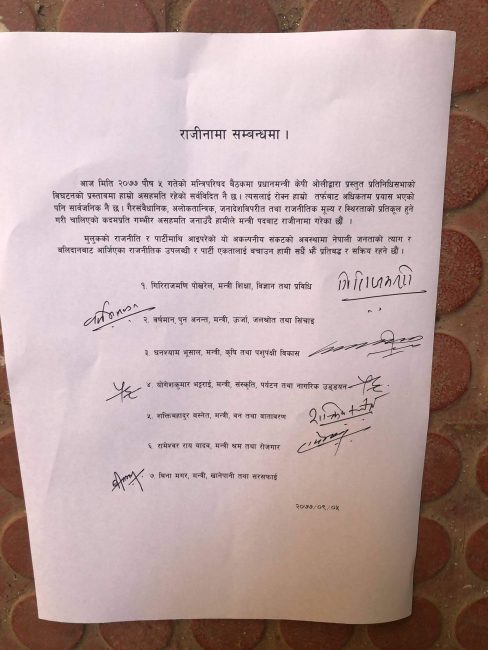 राजीनामा सम्बन्धमा ।
आज मिति २०७७ पौष ५ गतेको मन्त्रिपरिषद बैठकमा प्रधानमन्त्री केपी ओलीद्वारा प्रस्तुत प्रतिनिधिसभाको
बिघटनको प्रस्तावमा हाम्रो असहमति रहेको सर्वविदित नै छ । त्यसलाई रोक्न हाम्रो तर्फबाट अधिकतम प्रयास भएको
पनि सार्वजनिक नै छ । गैरसंवैधानिक, अलोकतान्त्रिक, जनादेशविपरीत तथा राजनीतिक मूल्य र स्थिरताको प्रतिकूल हुने
गरी चालिएको कदमप्रति गम्भीर असहमति जनाउँदै हामीले मन्त्री पदबाट राजीनामा गरेका छौं ।
मुलुकको राजनीति र पार्टीमाथि आइपरेको यो अकल्पनीय संकटको अवस्थामा नेपाली जनताको त्याग र
बलिदानबाट आर्जिएका राजनीतिक उपलब्धी र पार्टी एकतालाई बचाउन हामी सधैं झैं प्रतिबद्ध र सक्रिय रहने छौं ।
१. गिरिराजमणि पोखरेल, मन्त्री शिक्षा, विज्ञान तथा प्रविधि
२. बर्षमान पुन अनन्त, मन्त्री, ऊर्जा, जलश्रोत तथा सिंचाइ
३. घनश्याम भुसाल, मन्त्री, कृषि तथा पशुपंक्षी विकास
४. योगेशकुमार भट्टराई, मन्त्री, संस्कृति, पर्यटन तथा नागरिक उड्डयन
५. शक्तिबहादुर बस्नेत, मन्त्री, वन तथा वातावरण
६. रामेश्वर राय यादव, मन्त्री श्रम तथा रोजगार
७. बिना मगर, मन्त्री, खानेपानी तथा सरसफाई
२०७७/०९/०५